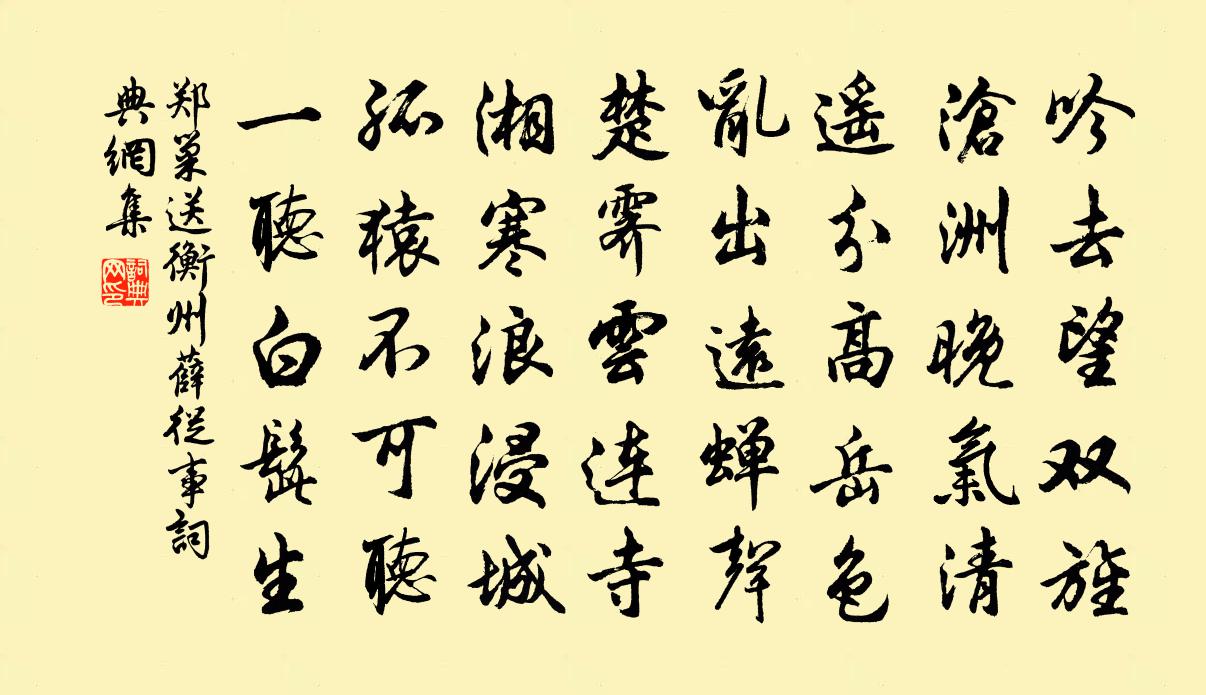 吟去望双旌
滄洲晚氣清
遥分高岳色
亂出遠蝉聲
楚霁雲連寺
湘寒浪浸城
孤猿不可聽
一聽白髭生
郑巢送衡州薛從事詞
典網集
詞典
网印